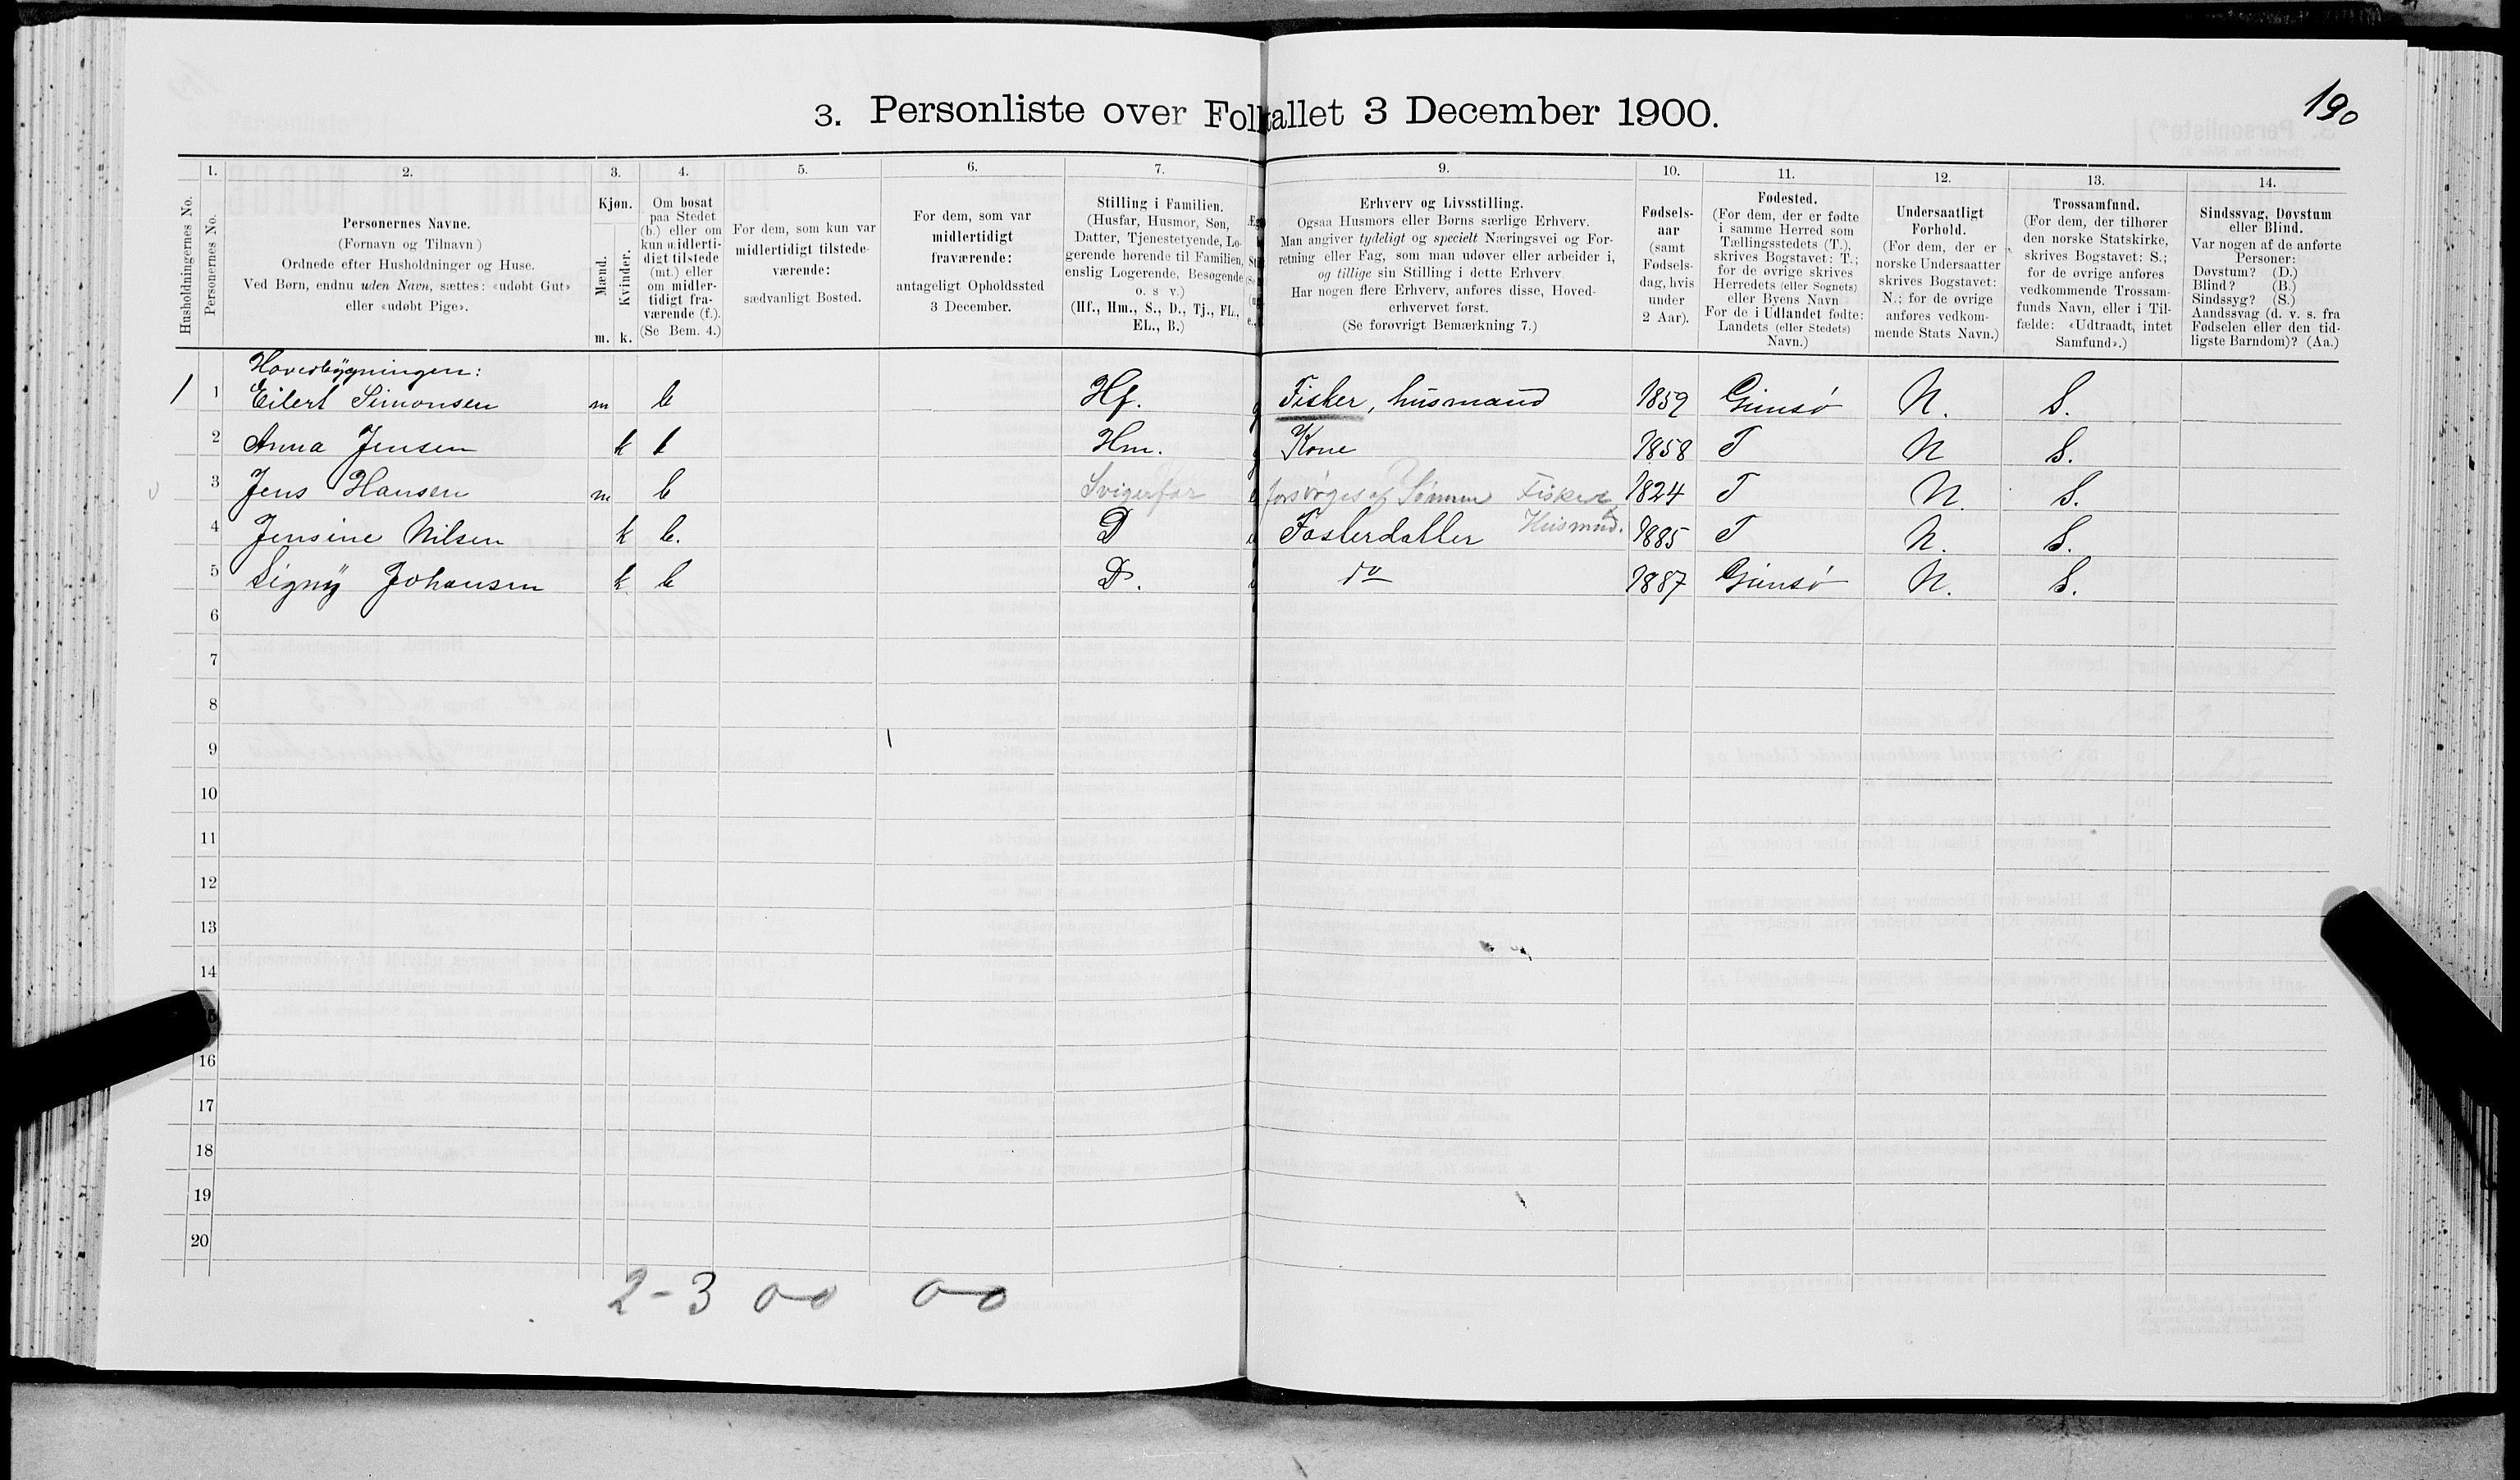 190
3. Personliste over Folketallet 3 December 1900.
Husholdningernes No.
1.
Personernes No.
2.
Personernes Navne.
(Fornavn og Tilnavn)
Ordnede efter Husholdninger og Huse.
Ved Børn, endnu uden Navn, sættes: «udøbt Gut»
eller «udøbt Pige».
3.
Kjøn.
Mænd. Kvinder.
m. k.
4.
Om bosat
paa Stedet
(b.) eller om
kun midlerti-
digt tilstede
(mt.) eller
om midler-
tidigt fra-
værende (f.).
(Se Bem. 4.)
5.
For dem, som kun var
midlertidigt tilstede-
værende:
sædvanligt Bosted.
6.
For dem, som var
midlertidigt
fraværende:
antageligt Opholdssted
3 December.
7.
Stilling i Familien.
(Husfar, Husmor, Søn,
Datter, Tjenestetyende, Lo-
gerende hørende til Familien,
enslig Logerende, Besøgende
o. s v.)
(Hf., Hm., S., D., Tj., FL.,
EL., B.)
9.
Erhverv og Livsstilling.
Ogsaa Husmors eller Børns særlige Erhverv.
Man angiver tydeligt og specielt Næringsvei og For-
retning eller Fag, som man udøver eller arbeider i,
og tillige sin Stilling i dette Erhverv.
Har nogen flere Erhverv, anføres disse, Hoved-
erhvervet først.
(Se forøvrigt Bemærkning 7.)
10.
Fødsels-
aar
(samt
Fødsels-
dag, hvis
under
2 Aar).
11.
Fødested.
(For dem, der er fødte
i samme Herred som
Tællingsstedets (T.),
skrives Bogstavet: T.;
for de øvrige skrives
Herredets (eller Sognets)
eller Byens Navn
For de i Udlandet fødte:
Landets (eller Stedets)
Navn.)
12.
Undersaatligt
Forhold.
(For dem, der er
norske Undersaatter
skrives Bogstavet:
N.; for de øvrige
anføres vedkom-
mende Stats Navn.)
13.
Trossamfund.
(For dem, der tilhører
den norske Statskirke,
skrives Bogstavet: S.;
for de øvrige anføres
vedkommende Trossam-
funds Navn, eller i Til-
fælde: «Udtraadt, intet
Samfund».)
14.
Sindssvag, Døvstum
eller Blind.
Var nogen af de anførte
Personer:
Døvstum? (D.)
Blind? (B.)
Sindssyg? (S.)
Aandssvag (d. v. s. fra
Fødselen eller den tid-
ligste Barndom)? (Aa.)
Hovedbygningen:
1 1 Eilert Simonsen m b Hf. g Fisker, husmand 1859 Gimsø N. S.
2 Anna Jensen k b Hm. g Kone 1858 T N S.
3 Jens Hansen m b Svigerfar forsørges af Sønnen Fisker 1824 T N. S.
4 Jensine Nilsen k b. D Fosterdatter Husmnd. 1885 T N. S.
5 Signy Johansen k b D. do 1887 Gimsø N. S.
6
7
8
9
10
11
12
13
14
16
17
18
19
20
2-3 0-0 0-0